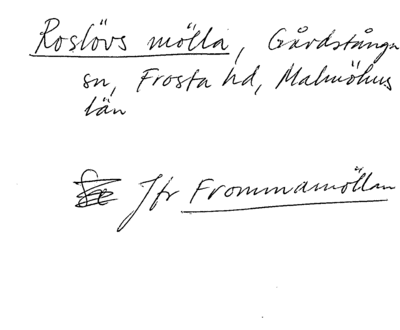 Roslövs mölla, Gårdstånga
sn, Frosta hd, Malmöhus
län
Jfr Frommamöllan